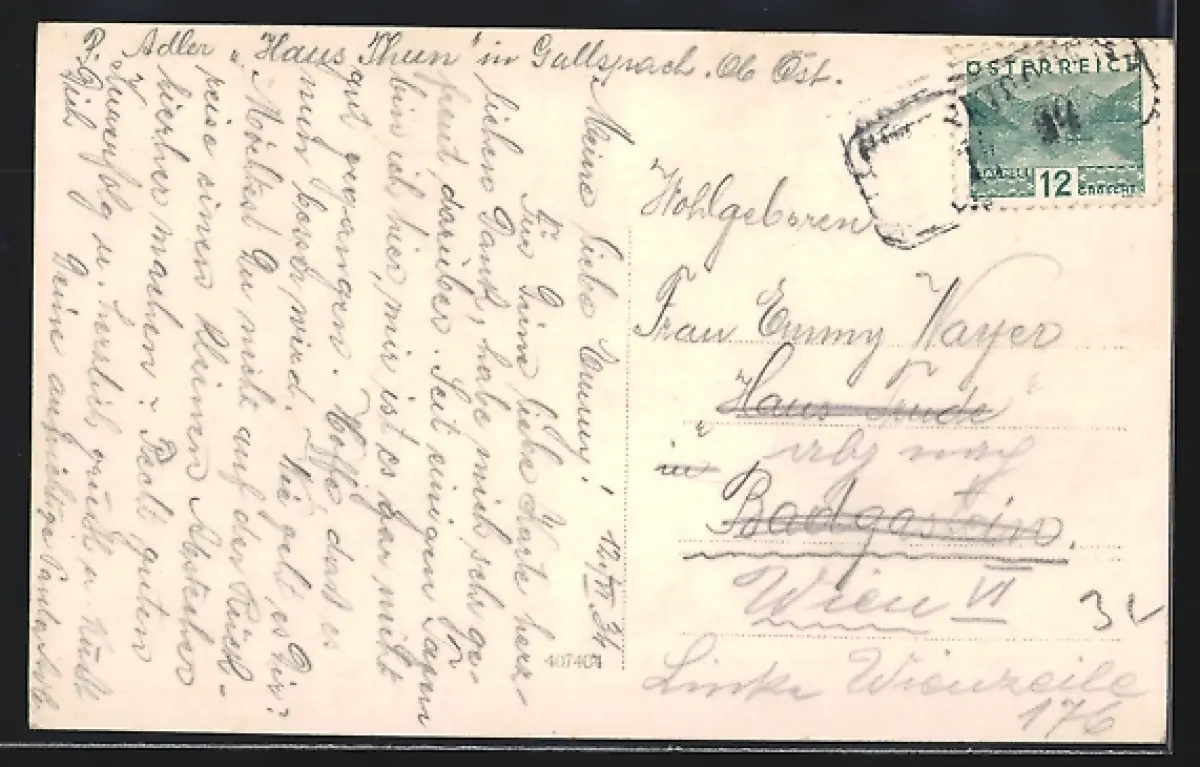 P. Adler „Haus Thun" in Gallspach. Ob Öst.
Meine liebe Emmy! 12/VI 34
Für Deine liebe Karte herz-
lichen Dank, habe mich sehr ge-
freut darüber. Seit einigen Tagen
bin ich hier, mir ist es gar nicht
gut gegangen. Hoffe das es
nun besser wird. Wie geht es Dir?
Möchtest Du nicht auf der Rück-
reise einen kleinen Abstecher
hierher machen? Recht guten
Kurerfolg u. herzlich grüßt u. küßt
Dich Deine aufrichtige
ÖSTERREICH
12
GROSCHEN
Wohlgeboren
Frau Emmy Mayer
Haus Trude
in
Badgastein.
Wien VI
Linke Wienzeile
176
407404